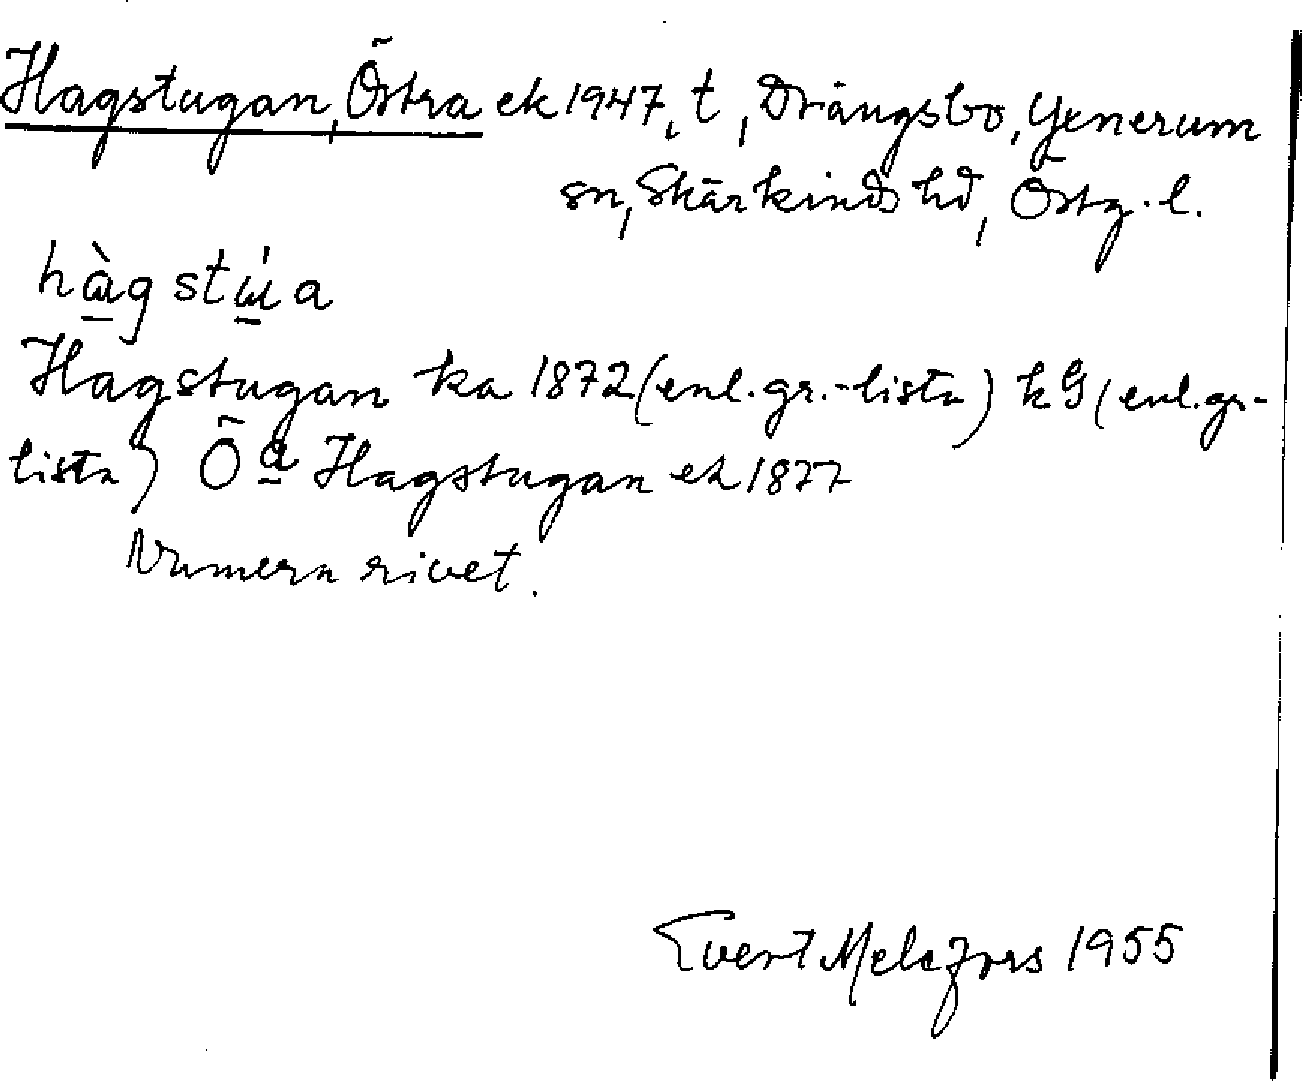 Hagstugan, Östra ek 1947, t, Drängsbo, Yxnerum
sn, Skärkinds hd, Östg. l.
hàgstúa
Hagstugan ka 1872 (enl. gr.-lista) kG (enl. gr-
lista) Öa Hagstugan ek 1877
Numera rivet.
Evert Melefors 1955